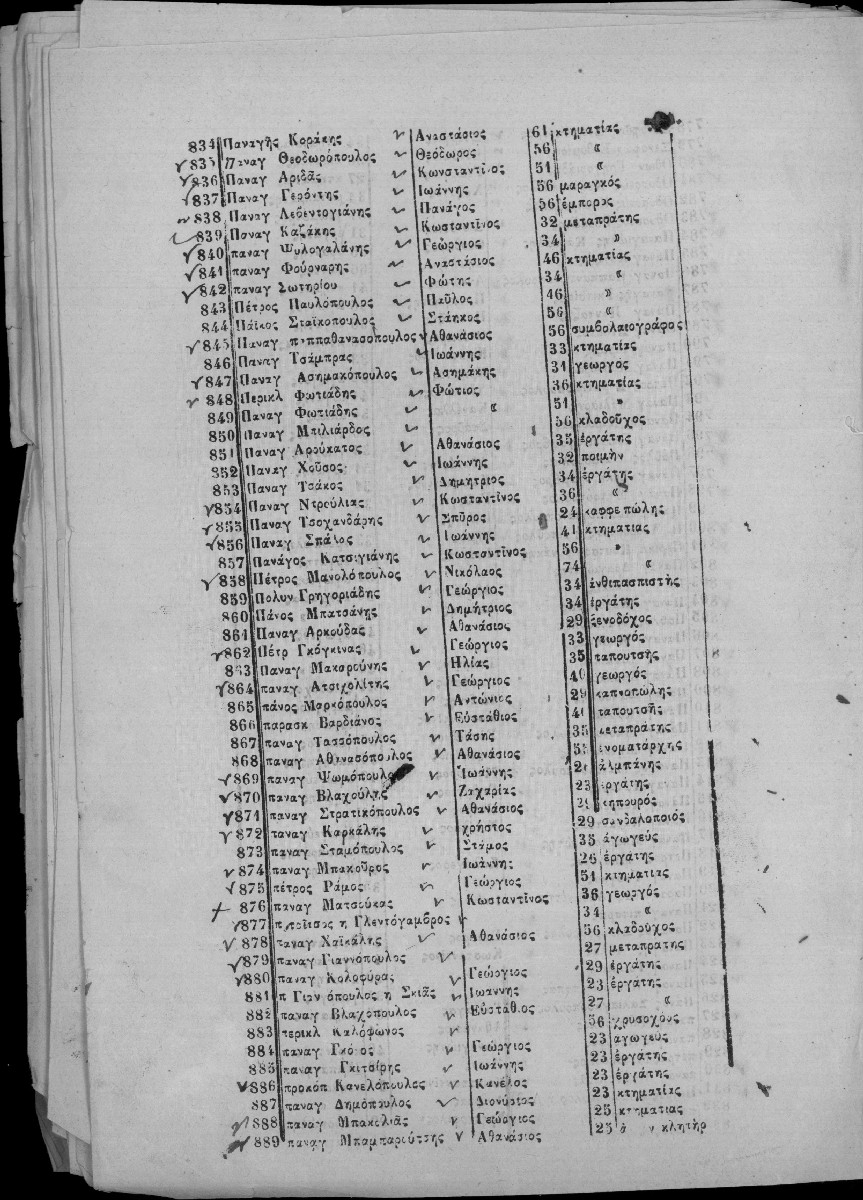 834 Παναγῆς Κοράκης Αναστάσιος 61 κτηματίας
835 Παναγ Θεοδωρόπουλος Θεόδωρος 56 «
836 Παναγ Αριδᾶς Κωνσταντῖνος 51 «
837 Παναγ Γερόντης Ιωάννης 56 μαραγκός
838 Παναγ Λεβεντογιάνης Πανάγος 56 ἔμπορος
839 Παναγ Καζάκης Κωσταντῖνος 32 μεταπράτης
840 παναγ Ψυλογαλάνης Γεώργιος 34 »
841 παναγ Φούρναρης Αναστάσιος 46 κτηματίας
842 παναγ Σωτηρίου Φώτης 34 «
843 Πέτρος Παυλόπουλος Παῦλος 46 »
844 Πάϊκος Σταϊκοπουλος Στάηκος 56 «
845 Παναγ παππαθανασοπουλος Αθανάσιος 56 συμβολαιογράφος
846 Παναγ Τσάμπρας Ιωάννης 33 κτηματίας
847 Παναγ Ασημακόπουλος Ασημάκης 31 γεωργος
848 Περικλ Φωτιάδης Φώτιος 36 κτηματίας
849 Παναγ Φωτιάδης « 51 »
850 Παναγ Μπιλιάρδος 56 κλαδοῦχος
851 Παναγ Αρούκατος Αθανάσιος 35 ἐργάτης
852 Παναγ Χοῦσος Ιωάννης 32 ποιμὴν
853 Παναγ Τσάκος Δημήτριος 34 ἐργάτης
854 Παναγ Ντρούλιας Κωσταντῖνος 36 «
855 Παναγ Τσοχανδάρης Σπῦρος 24 καφφεπώλης
856 Παναγ Σπάλος Ιωάννης 41 κτηματιας
857 Πανάγος Κατσιγιάνης Κωσταντῖνος 56 »
858 Πέτρος Μανολόπουλος Νικόλαος 74 «
859 Πολυν Γρηγοριάδης Γεώργιος 34 ἀνθιπασπιστὴς
860 Πάνος Μπατσάνης Δημήτριος 34 ἐργάτης
861 Παναγ Αρκούδας Αθανάσιος 29 ξενοδόχος
862 Πέτρ Γκόγκινας Γεώργιος 33 γεωργός
863 Παναγ Μακρούνης Ηλίας 35 παπουτσῆς
864 παναγ Ατσιχολίτης Γεώργιος 40 γεωργός
865 πάνος Μαρκόπουλος Αντώνιος 29 καπνοπώλης
866 παρασκ Βαρδιάνος Εὐστάθιος 40 παπουτσῆς
867 παναγ Τασσόπουλος Τάσης 35 μεταπράτης
868 παναγ Αθανασόπουλος Αθανάσιος 55 ἐνοματάρχης
869 παναγ Ψωμόπουλος Ἰωάννης ἀλμπάνης
870 παναγ Βλαχούλης Ζαχαρίας 23 ἐργάτης
871 παναγ Στρατικόπουλος Αθανάσιος κηπουρός
872 παναγ Καρκάλης χρήστος 29 σανδαλοποιός
873 παναγ Σταμόπουλος Στάμος 35 ἀγωγεύς
874 παναγ Μπακοῦρος Ιωάννης 26 ἐργάτης
875 πέτρος Ράμος Γεώργιος 51 κτηματιας
876 παναγ Ματσούκας Κωσταντῖνος 36 γεωργός
877 η Γλεντόγαμβρος 34 «
878 παναγ Χαϊκάλης Αθανάσιος 56 κλαδοῦχος
879 παναγ Γιαννόπουλος 27 μεταπρατης
880 παναγ Κολοφύρας Γεώργιος 29 ἐργάτης
881 π Γιαν όπουλος η Σκιᾶς Ιωαννης 23 ἐργατης
882 παναγ Βλαχοπουλος Εὐστάθιος 27 «
883 περικλ Καλόφωνος 56 χρυσοχόος
884 παναγ Γκότος Γεώργιος 23 αγωγευς
885 παναγ Γκιτσίρης Ιωάννης 23 ἐργάτης
886 προκόπ Κανελόπουλος Κανέλος 23 ἐργάτης
887 παναγ Δημόπουλος Διονύσιος 23 κτηματίας
888 παναγ Μπακολιᾶς Γεώργιος 25 κτηματιας
889 παναγ Μπαμπαρούτσης Αθανάσιος 25 κλητὴρ